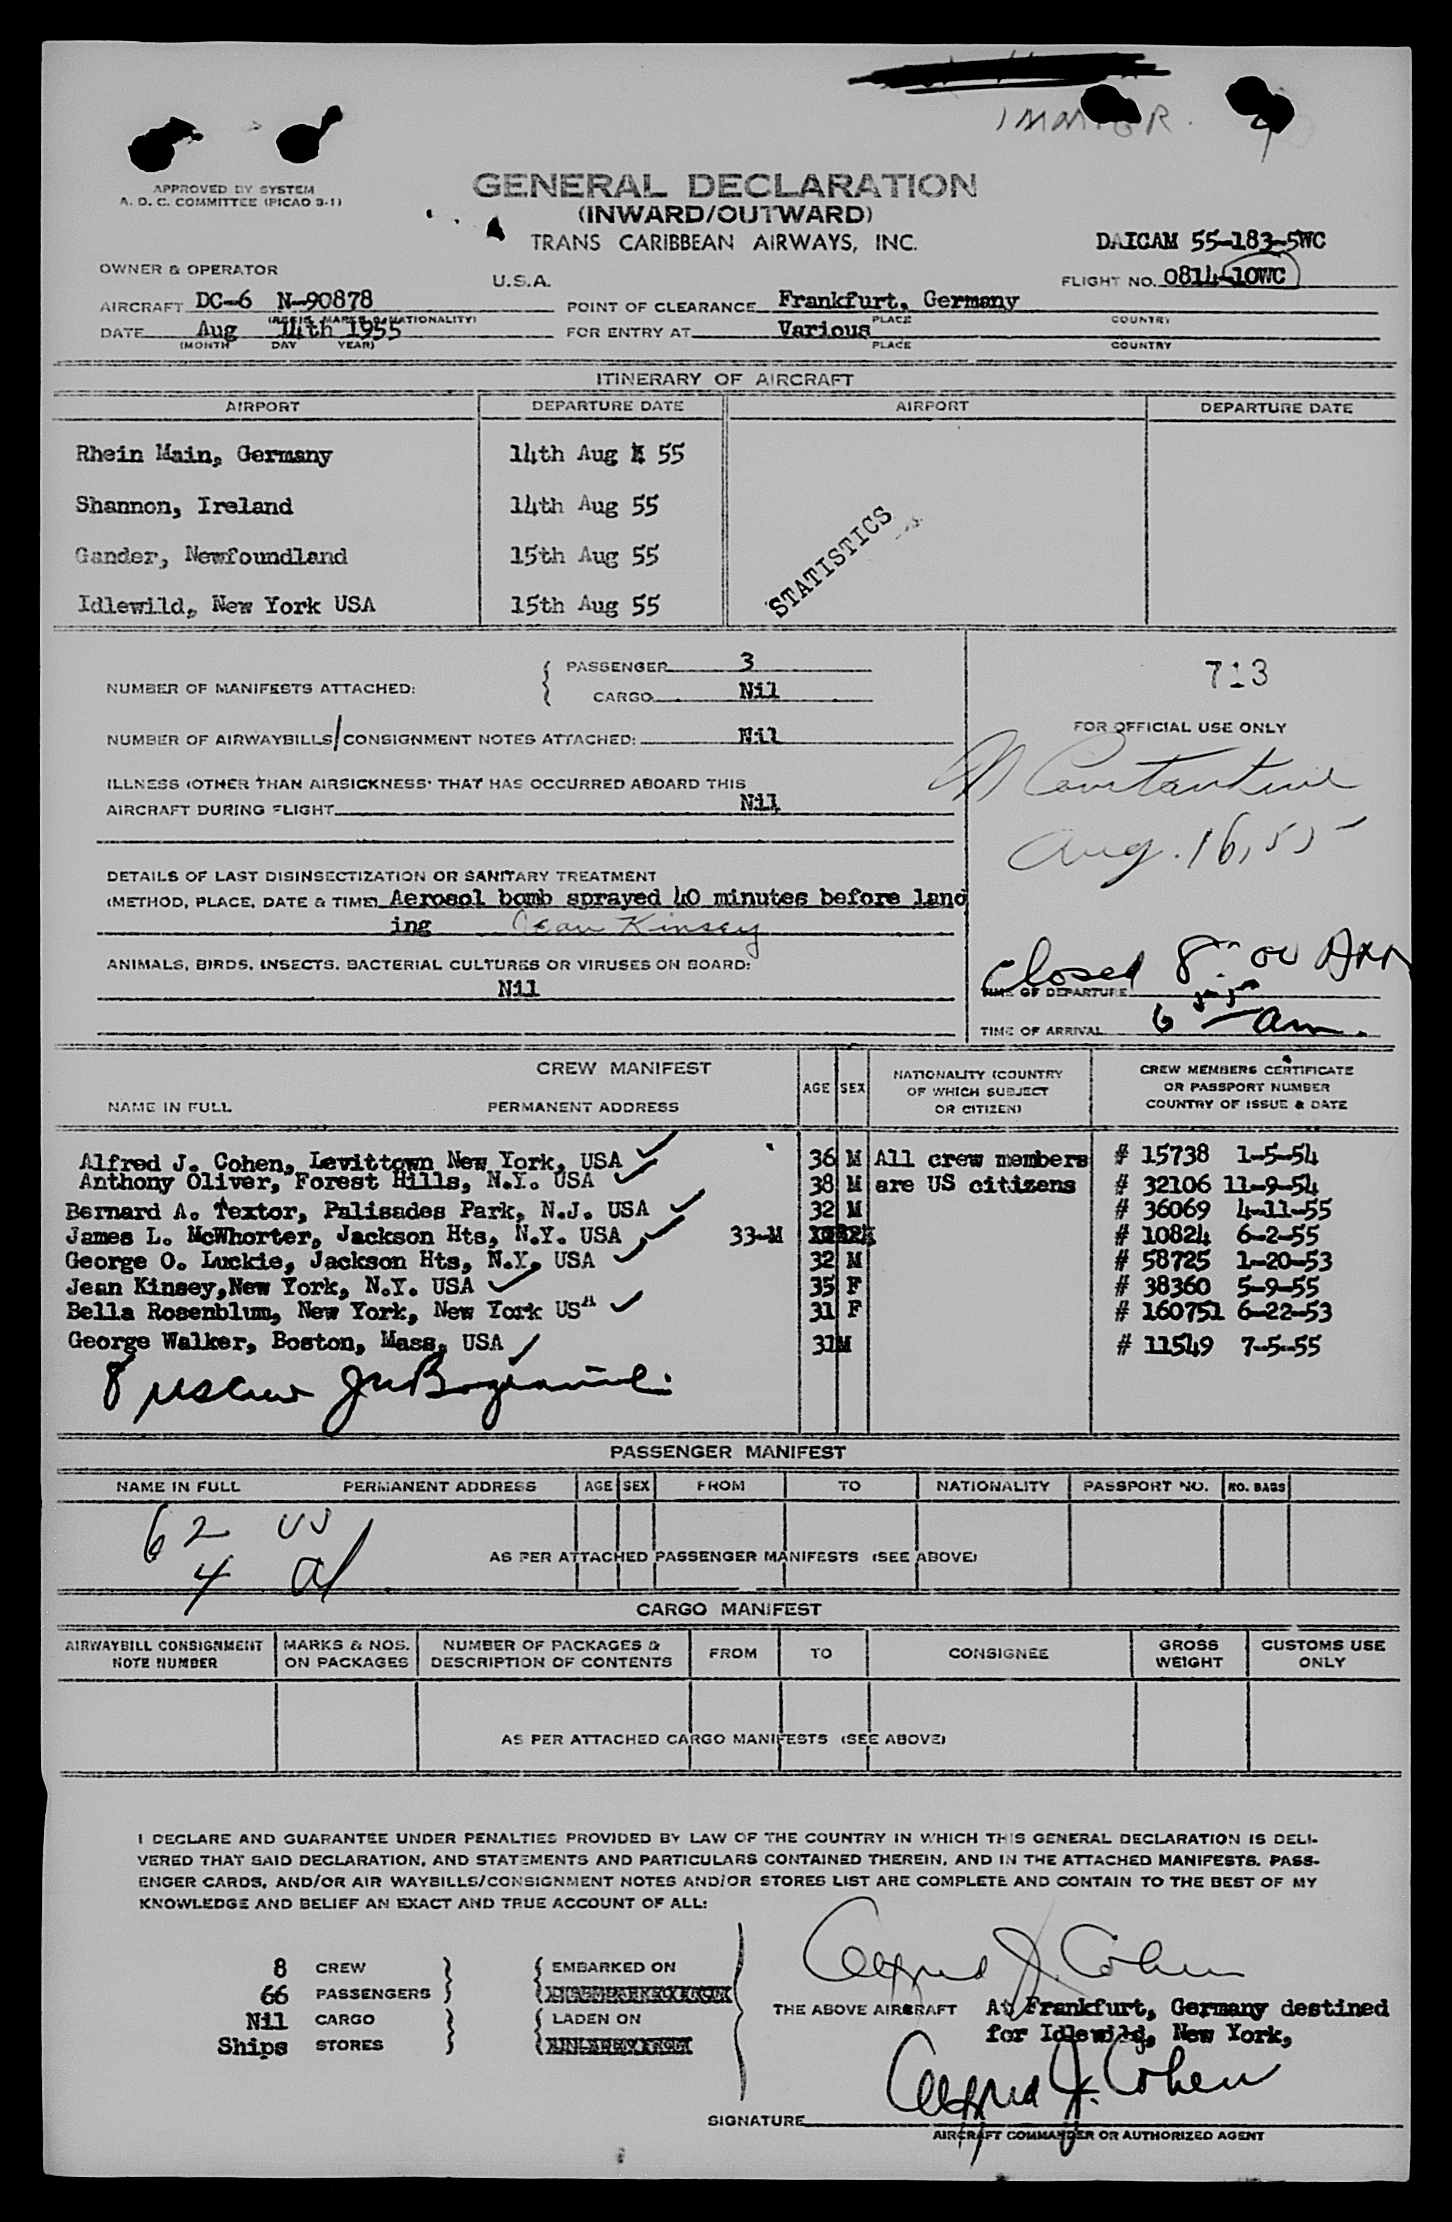 IMMIGR.
APPROVED BY SYSTEM
A. O. C. COMMITTEE (PICAO 9-1)
GENERAL DECLARATION
(INWARD/OUTWARD)
TRANS CARIBBEAN AIRWAYS, INC.
DAICAM 55-183-5WC
OWNER & OPERATOR
U.S.A.
FLIGHT NO. 0814-10WC
AIRCRAFT DC-6 N-90878
POINT OF CLEARANCE Frankfurt, Germany
(REG'IS. MARKS & NATIONALITY)
PLACE COUNTRY
DATE Aug 14th 1955
FOR ENTRY AT Various
(MONTH DAY YEAR)
PLACE COUNTRY
ITINERARY OF AIRCRAFT
AIRPORT DEPARTURE DATE AIRPORT DEPARTURE DATE
Rhein Main, Germany 14th Aug 55
Shannon, Ireland 14th Aug 55
Gander, Newfoundland 15th Aug 55
Idlewild, New York USA 15th Aug 55
STATISTICS
NUMBER OF MANIFESTS ATTACHED:
PASSENGER 3
CARGO Nil
713
NUMBER OF AIRWAYBILLS/CONSIGNMENT NOTES ATTACHED: Nil
FOR OFFICIAL USE ONLY
Constantine
Aug. 16, 55
ILLNESS (OTHER THAN AIRSICKNESS) THAT HAS OCCURRED ABOARD THIS
AIRCRAFT DURING FLIGHT Nil
DETAILS OF LAST DISINSECTIZATION OR SANITARY TREATMENT
(METHOD, PLACE, DATE & TIME) Aerosol bomb sprayed 40 minutes before land
ing Jean Kinsey
ANIMALS, BIRDS, INSECTS, BACTERIAL CULTURES OR VIRUSES ON BOARD:
Nil
Closed 8:00 Am
TIME OF DEPARTURE
TIME OF ARRIVAL 6 55 am.
CREW MANIFEST
NAME IN FULL PERMANENT ADDRESS
AGE SEX
NATIONALITY (COUNTRY
OF WHICH SUBJECT
OR CITIZEN)
CREW MEMBERS CERTIFICATE
OR PASSPORT NUMBER
COUNTRY OF ISSUE & DATE
Alfred J. Cohen, Levittown New York, USA 36 M All crew members # 15738 1-5-54
Anthony Oliver, Forest Hills, N.Y. USA 38 M are US citizens # 32106 11-9-54
Bernard A. Textor, Palisades Park, N.J. USA 32 M # 36069 4-11-55
James L. McWhorter, Jackson Hts, N.Y. USA 33-M # 10824 6-2-55
George O. Luckie, Jackson Hts, N.Y. USA 32 M # 58725 1-20-53
Jean Kinsey,New York, N.Y. USA 35 F # 38360 5-9-55
Bella Rosenblum, New York, New York USA 31 F # 160751 6-22-53
George Walker, Boston, Mass, USA 31M # 11549 7-5-55
8 uscrew
PASSENGER MANIFEST
NAME IN FULL PERMANENT ADDRESS AGE SEX FROM TO NATIONALITY PASSPORT NO. NO. BAGS
62 US
4 al
AS PER ATTACHED PASSENGER MANIFESTS (SEE ABOVE)
CARGO MANIFEST
AIRWAYBILL CONSIGNMENT
NOTE NUMBER
MARKS & NOS.
ON PACKAGES
NUMBER OF PACKAGES &
DESCRIPTION OF CONTENTS
FROM TO CONSIGNEE
GROSS
WEIGHT
CUSTOMS USE
ONLY
AS PER ATTACHED CARGO MANIFESTS (SEE ABOVE)
I DECLARE AND GUARANTEE UNDER PENALTIES PROVIDED BY LAW OF THE COUNTRY IN WHICH THIS GENERAL DECLARATION IS DELI-
VERED THAT SAID DECLARATION, AND STATEMENTS AND PARTICULARS CONTAINED THEREIN, AND IN THE ATTACHED MANIFESTS, PASS-
ENGER CARDS, AND/OR AIR WAYBILLS/CONSIGNMENT NOTES AND/OR STORES LIST ARE COMPLETE AND CONTAIN TO THE BEST OF MY
KNOWLEDGE AND BELIEF AN EXACT AND TRUE ACCOUNT OF ALL:
Alfred J. Cohen
8 CREW
66 PASSENGERS
Nil CARGO
Ships STORES
EMBARKED ON
LADEN ON
THE ABOVE AIRCRAFT At Frankfurt, Germany destined
for Idlewild, New York,
Alfred J. Cohen
SIGNATURE
AIRCRAFT COMMANDER OR AUTHORIZED AGENT